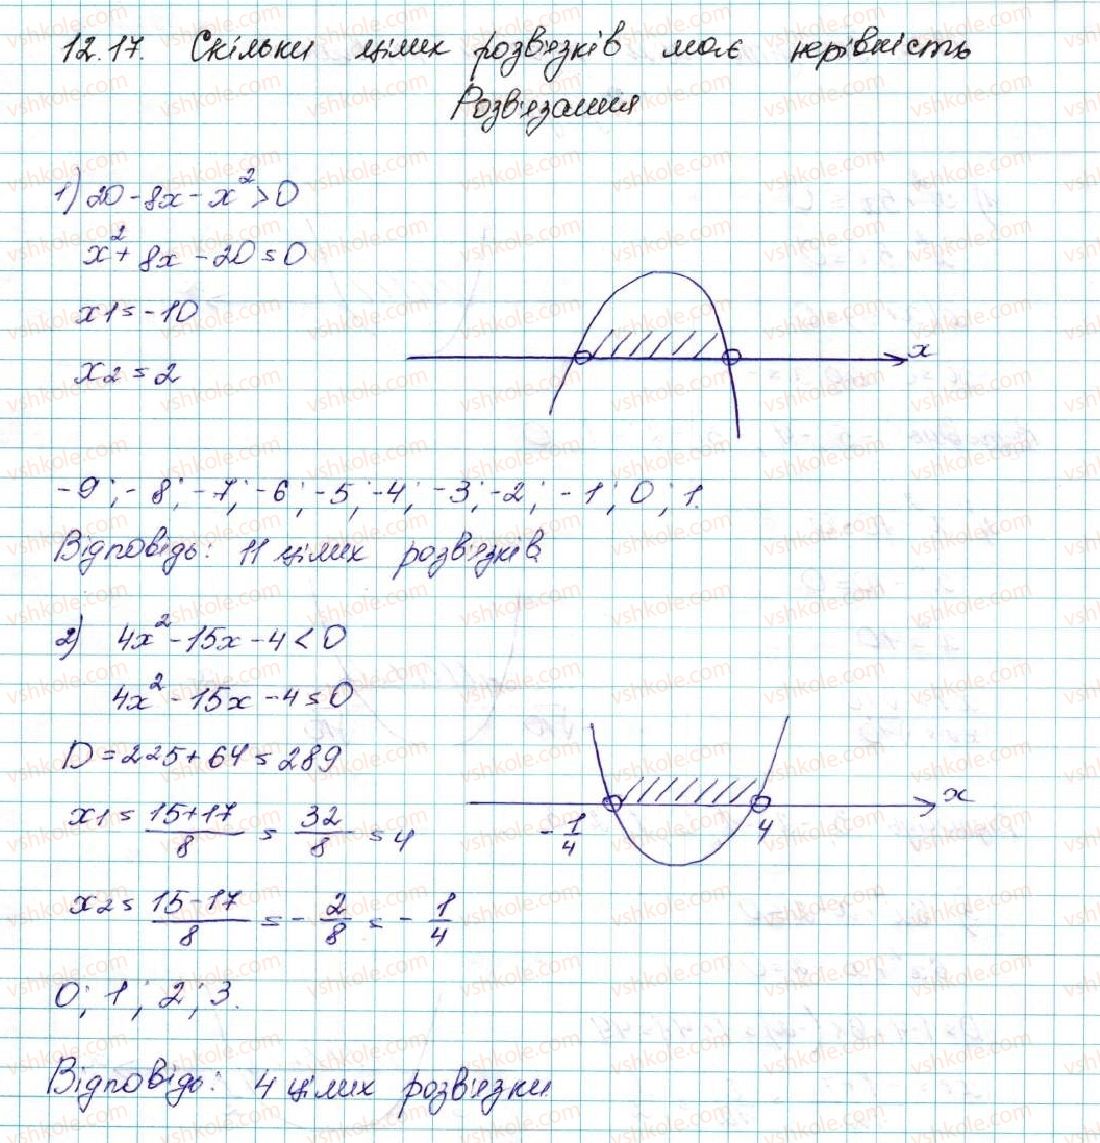 12.17. Скільки цілих розв'язків має нерівність
Розв'язання
1) 20 - 8x - x² > 0
x² + 8x - 20 = 0
x1 = -10
x2 = 2
x
-9; -8; -7; -6; -5; -4; -3; -2; -1; 0; 1.
Відповідь: 11 цілих розв'язків
2) 4x² - 15x - 4 < 0
4x² - 15x - 4 = 0
D = 225 + 64 = 289
x1 = 15+17/8 = 32/8 = 4
x
-1/4
4
x2 = 15-17/8 = -2/8 = -1/4
0; 1; 2; 3.
Відповідь: 4 цілих розв'язки
vshkole.com